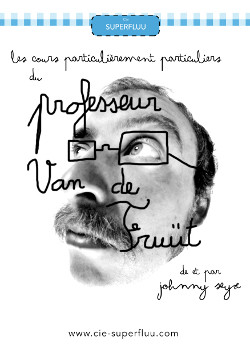 SUPERFLUU
les cours particulièrement particuliers
du
professeur
Van de
Fruüt
de et par
johnny seyx
www.cie-superfluu.com